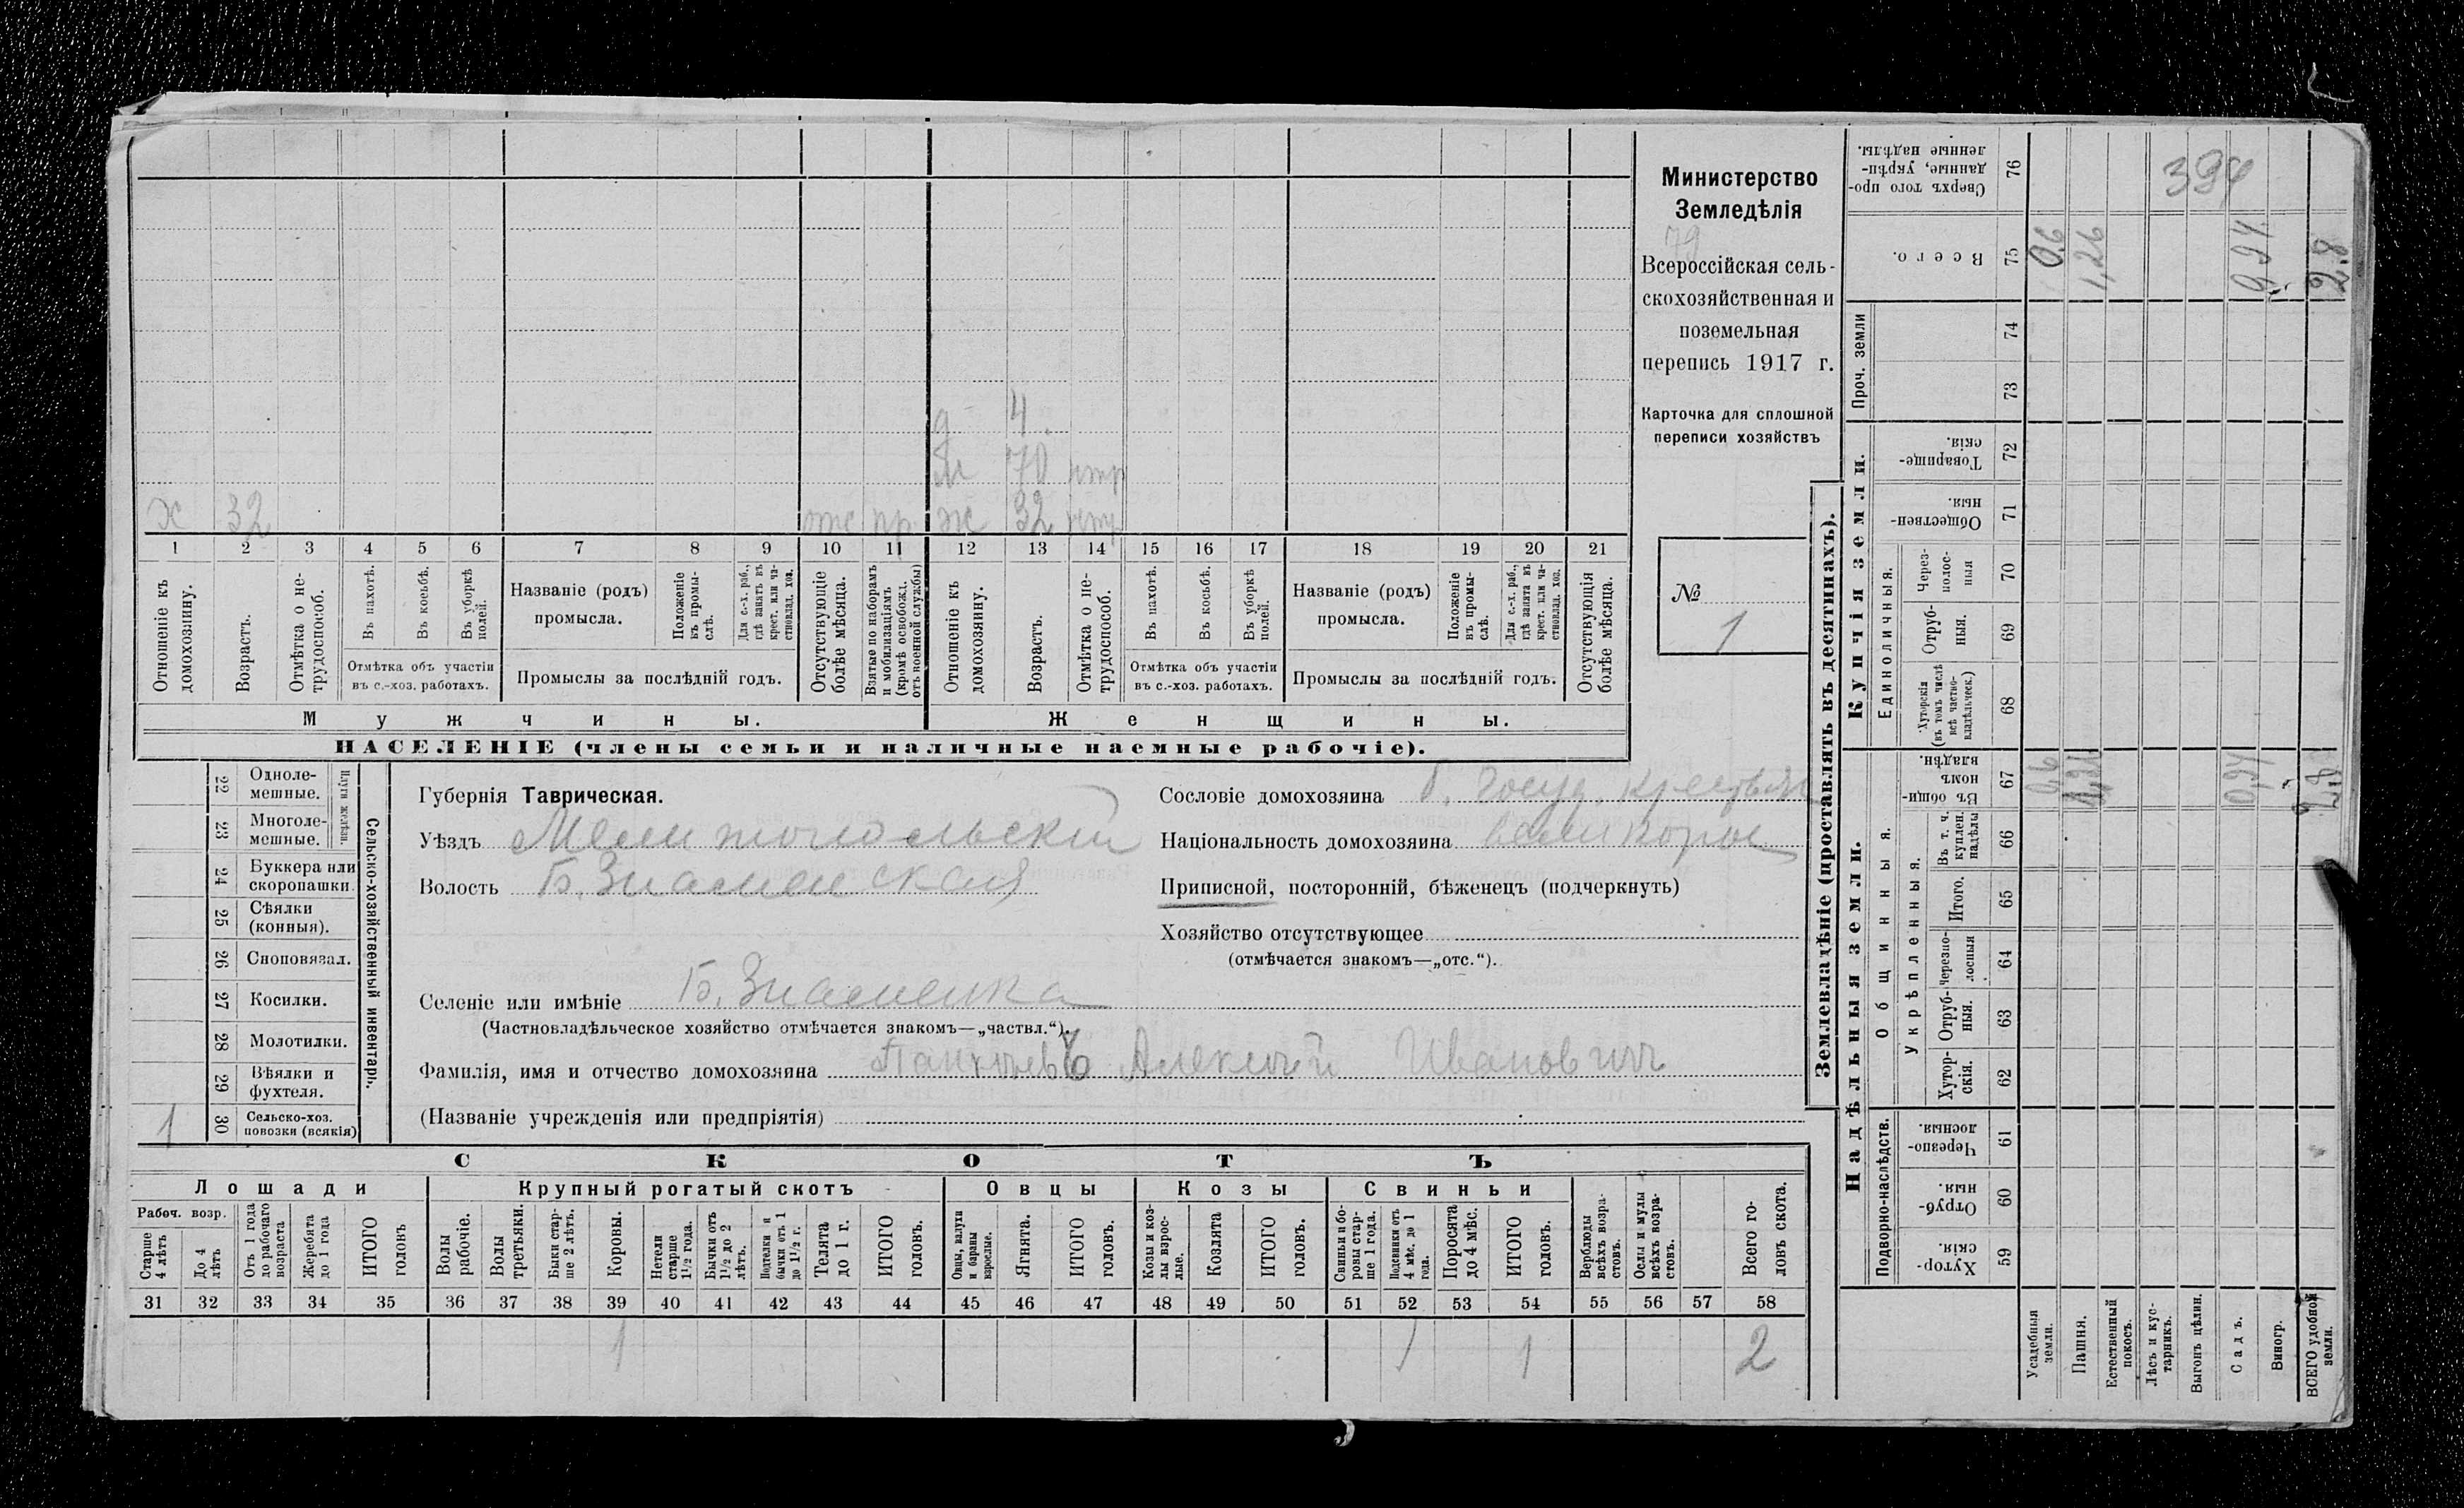 394
Министерство
Земледѣлія
79
Всероссійская сель-
скохозяйственная и
поземельная
перепись 1917 г.
Карточка для сплошной
переписи хозяйствъ
№
1
4
70 нтр
х 32 отс пр. ж 32 нтр
1 2 3 4 5 6 7 8 9 10 11 12 13 14 15 16 17 18 19 20 21
Отношеніе къ домохозяину.
Возрастъ.
Отмѣтка о не-трудоспособ.
Въ пахотѣ.
Въ косьбѣ.
Въ уборкѣ полей.
Отмѣтка объ участіи
въ с.-хоз. работахъ.
Названіе (родъ)
промысла.
Положеніе въ промы-слѣ.
Для с.-х. раб., гдѣ занятъ въ крест. или ча-стновлад. хоз.
Промыслы за послѣдній годъ.
Отсутствующіе болѣе мѣсяца.
Взятые по наборамъ и мобилизаціямъ (кромѣ освобожд. отъ военной службы)
Отношеніе къ домохозяину.
Возрастъ.
Отмѣтка о не-трудоспособ.
Въ пахотѣ.
Въ косьбѣ.
Въ уборкѣ полей.
Отмѣтка объ участіи
въ с.-хоз. работахъ.
Названіе (родъ)
промысла.
Положеніе въ промы-слѣ.
Для с.-х. раб., гдѣ занята въ крест. или ча-стновлад. хоз.
Промыслы за послѣдній годъ.
Отсутствующія болѣе мѣсяца.
Мужчины.
Женщины.
НАСЕЛЕНІЕ (члены семьи и наличные наемные рабочіе).
22 Одноле-мешные.
23 Многоле-мешные.
Плуги желѣзн.
24 Буккера или скоропашки.
25 Сѣялки (конныя).
26 Сноповязал.
27 Косилки.
28 Молотилки.
29 Вѣялки и фухтеля.
1 30 Сельско-хоз. повозки (всякія)
Сельско-хозяйственный инвентарь.
Губернія Таврическая.
Уѣздъ Мелитопольскій
Волость Б. Знаменская
Селеніе или имѣніе Б. Знаменка
(Частновладѣльческое хозяйство отмѣчается знакомъ—„частвл.“).
Фамилія, имя и отчество домохозяина Алексѣй Иванович
(Названіе учрежденія или предпріятія)
Сословіе домохозяина б. госуд. крестьян
Національность домохозяина великорос
Приписной, посторонній, бѣженецъ (подчеркнуть)
Хозяйство отсутствующее
(отмѣчается знакомъ—„отс.“).
СКОТЪ
Лошади
Крупный рогатый скотъ
Овцы
Козы
Свиньи
Рабоч. возр.
Старше 4 лѣтъ
До 4 лѣтъ
Отъ 1 года до рабочаго возраста
Жеребята до 1 года
ИТОГО головъ
Волы рабочіе.
Волы третьяки.
Быки стар-ше 2 лѣтъ.
Коровы.
Нетели старше 1½ года.
Бычки отъ 1½ до 2 лѣтъ.
Подтелки и бычки отъ 1 до 1½ г.
Телята до 1 г.
ИТОГО головъ.
Овцы, валухи и бараны взрослые.
Ягнята.
ИТОГО головъ.
Козы и коз-лы взрос-лые.
Козлята
ИТОГО головъ.
Свиньи и бо-ровы стар-ше 1 года.
Подсвинки отъ 4 мѣс. до 1 года.
Поросята до 4 мѣс.
ИТОГО головъ.
Верблюды всѣхъ возра-стовъ.
Ослы и мулы всѣхъ возра-стовъ.
Всего го-ловъ скота.
31 32 33 34 35 36 37 38 39 40 41 42 43 44 45 46 47 48 49 50 51 52 53 54 55 56 57 58
1 1 1 2
Землевладѣніе (проставлять въ десятинахъ).
Надѣльныя земли.
Купчія земли.
Проч. земли
Подворно-наслѣдств.
Общинныя.
Укрѣпленныя.
Единоличныя.
Сверхъ того про-данные, укрѣп-ленные надѣлы. 76
Всего. 75 0,6 1,26 0,94 2.8
74
73
Товарище-скія. 72
Обществен-ныя. 71
Через-полос-ныя 70
Отруб-ныя. 69
Хуторскія (въ томъ числѣ всѣ частно-владѣльческ.) 68
Въ общин-номъ владѣн. 67 0,6 1,26 0,94 2,8
Въ т. ч. куплен. надѣлы 66
Итого. 65
Черезпо-лосныя 64
Отруб-ныя. 63
Хутор-скія. 62
Черезпо-лосныя. 61
Отруб-ныя. 60
Хутор-скія. 59
Усадебныя земли.
Пашня.
Естественный покосъ.
Лѣсъ и кус-тарникъ.
Выгонъ цѣлин.
Садъ.
Виногр.
ВСЕГО удобной земли.